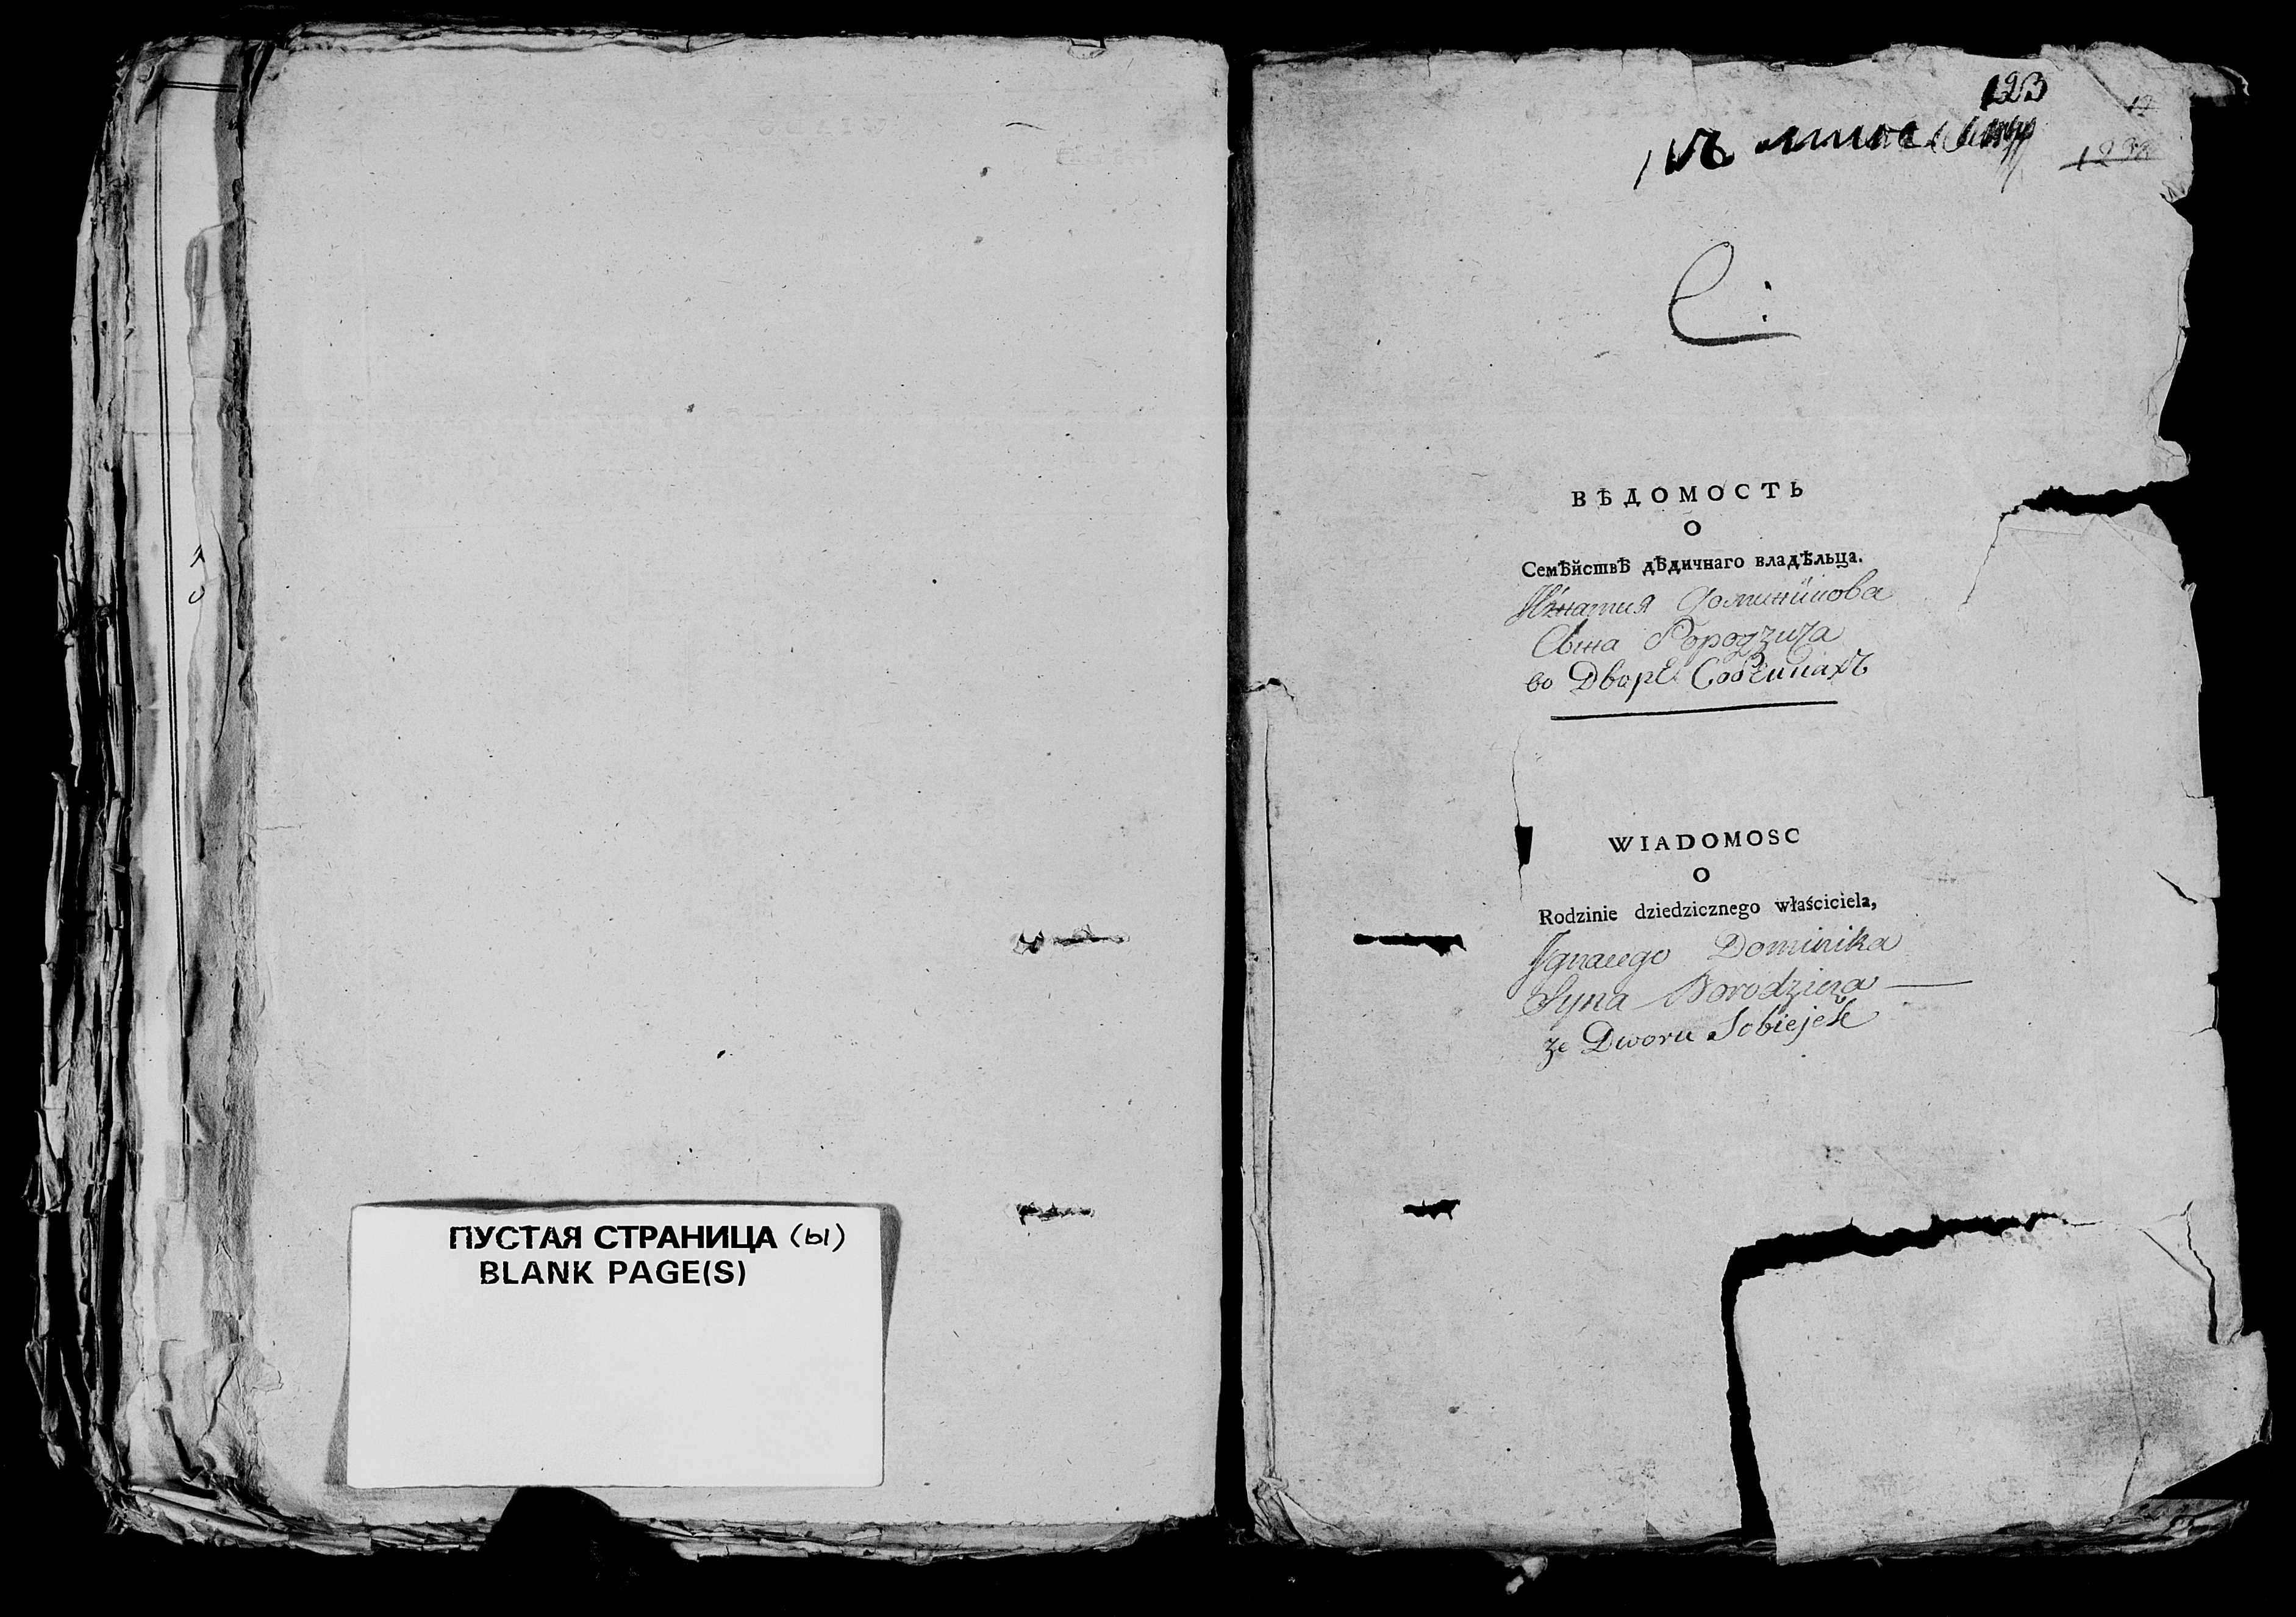 ПУСТАЯ СТРАНИЦА (ы)
BLANK PAGE(S)
123
ВѢДОМОСТЬ
О
Семѣйствѣ дѣдичнаго владѣльца.
Игнатия Доминикова
Сына Бородзича
во Дворѣ
WIADOMOSC
O
Rodzinie dziedzicznego właściciela,
Ignacego Dominika
Syna Borodzicza
ze Dworu Sobiejek